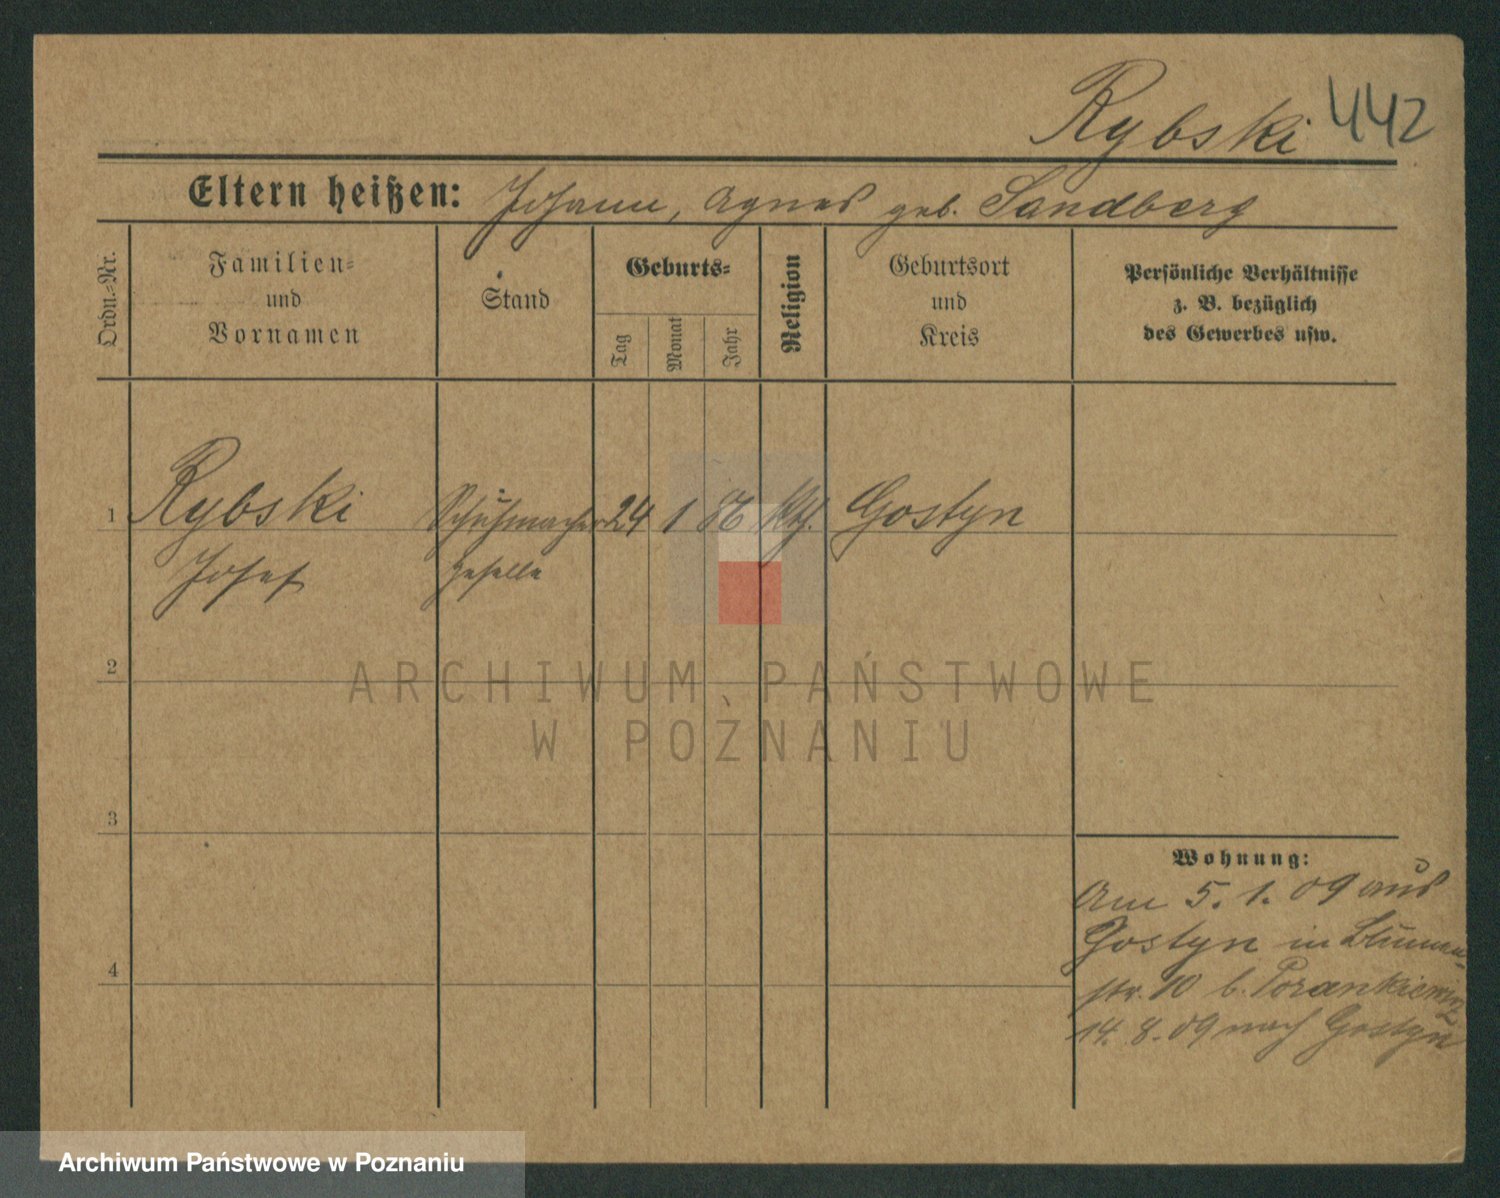 Rybski 442
Eltern heißen: Johann, Agnes geb. Sandberg
Ordn.-Nr.
Familien-
und
Vornamen
Stand
Geburts-
Tag
Monat
Jahr
Religion
Geburtsort
und
Kreis
Persönliche Verhältnisse
z. B. bezüglich
des Gewerbes usw.
1 Rybski Schuhmacher 24 1 86 Kth. Gostyn
Josef geselle
2
3
4
Wohnung:
Am 5. 1. 09 aus
Gostyn in Blumen-
str. 10 b. Porankiewicz
14. 8. 09 nach Gostyn
ARCHIWUM PAŃSTWOWE
W POZNANIU
Archiwum Państwowe w Poznaniu